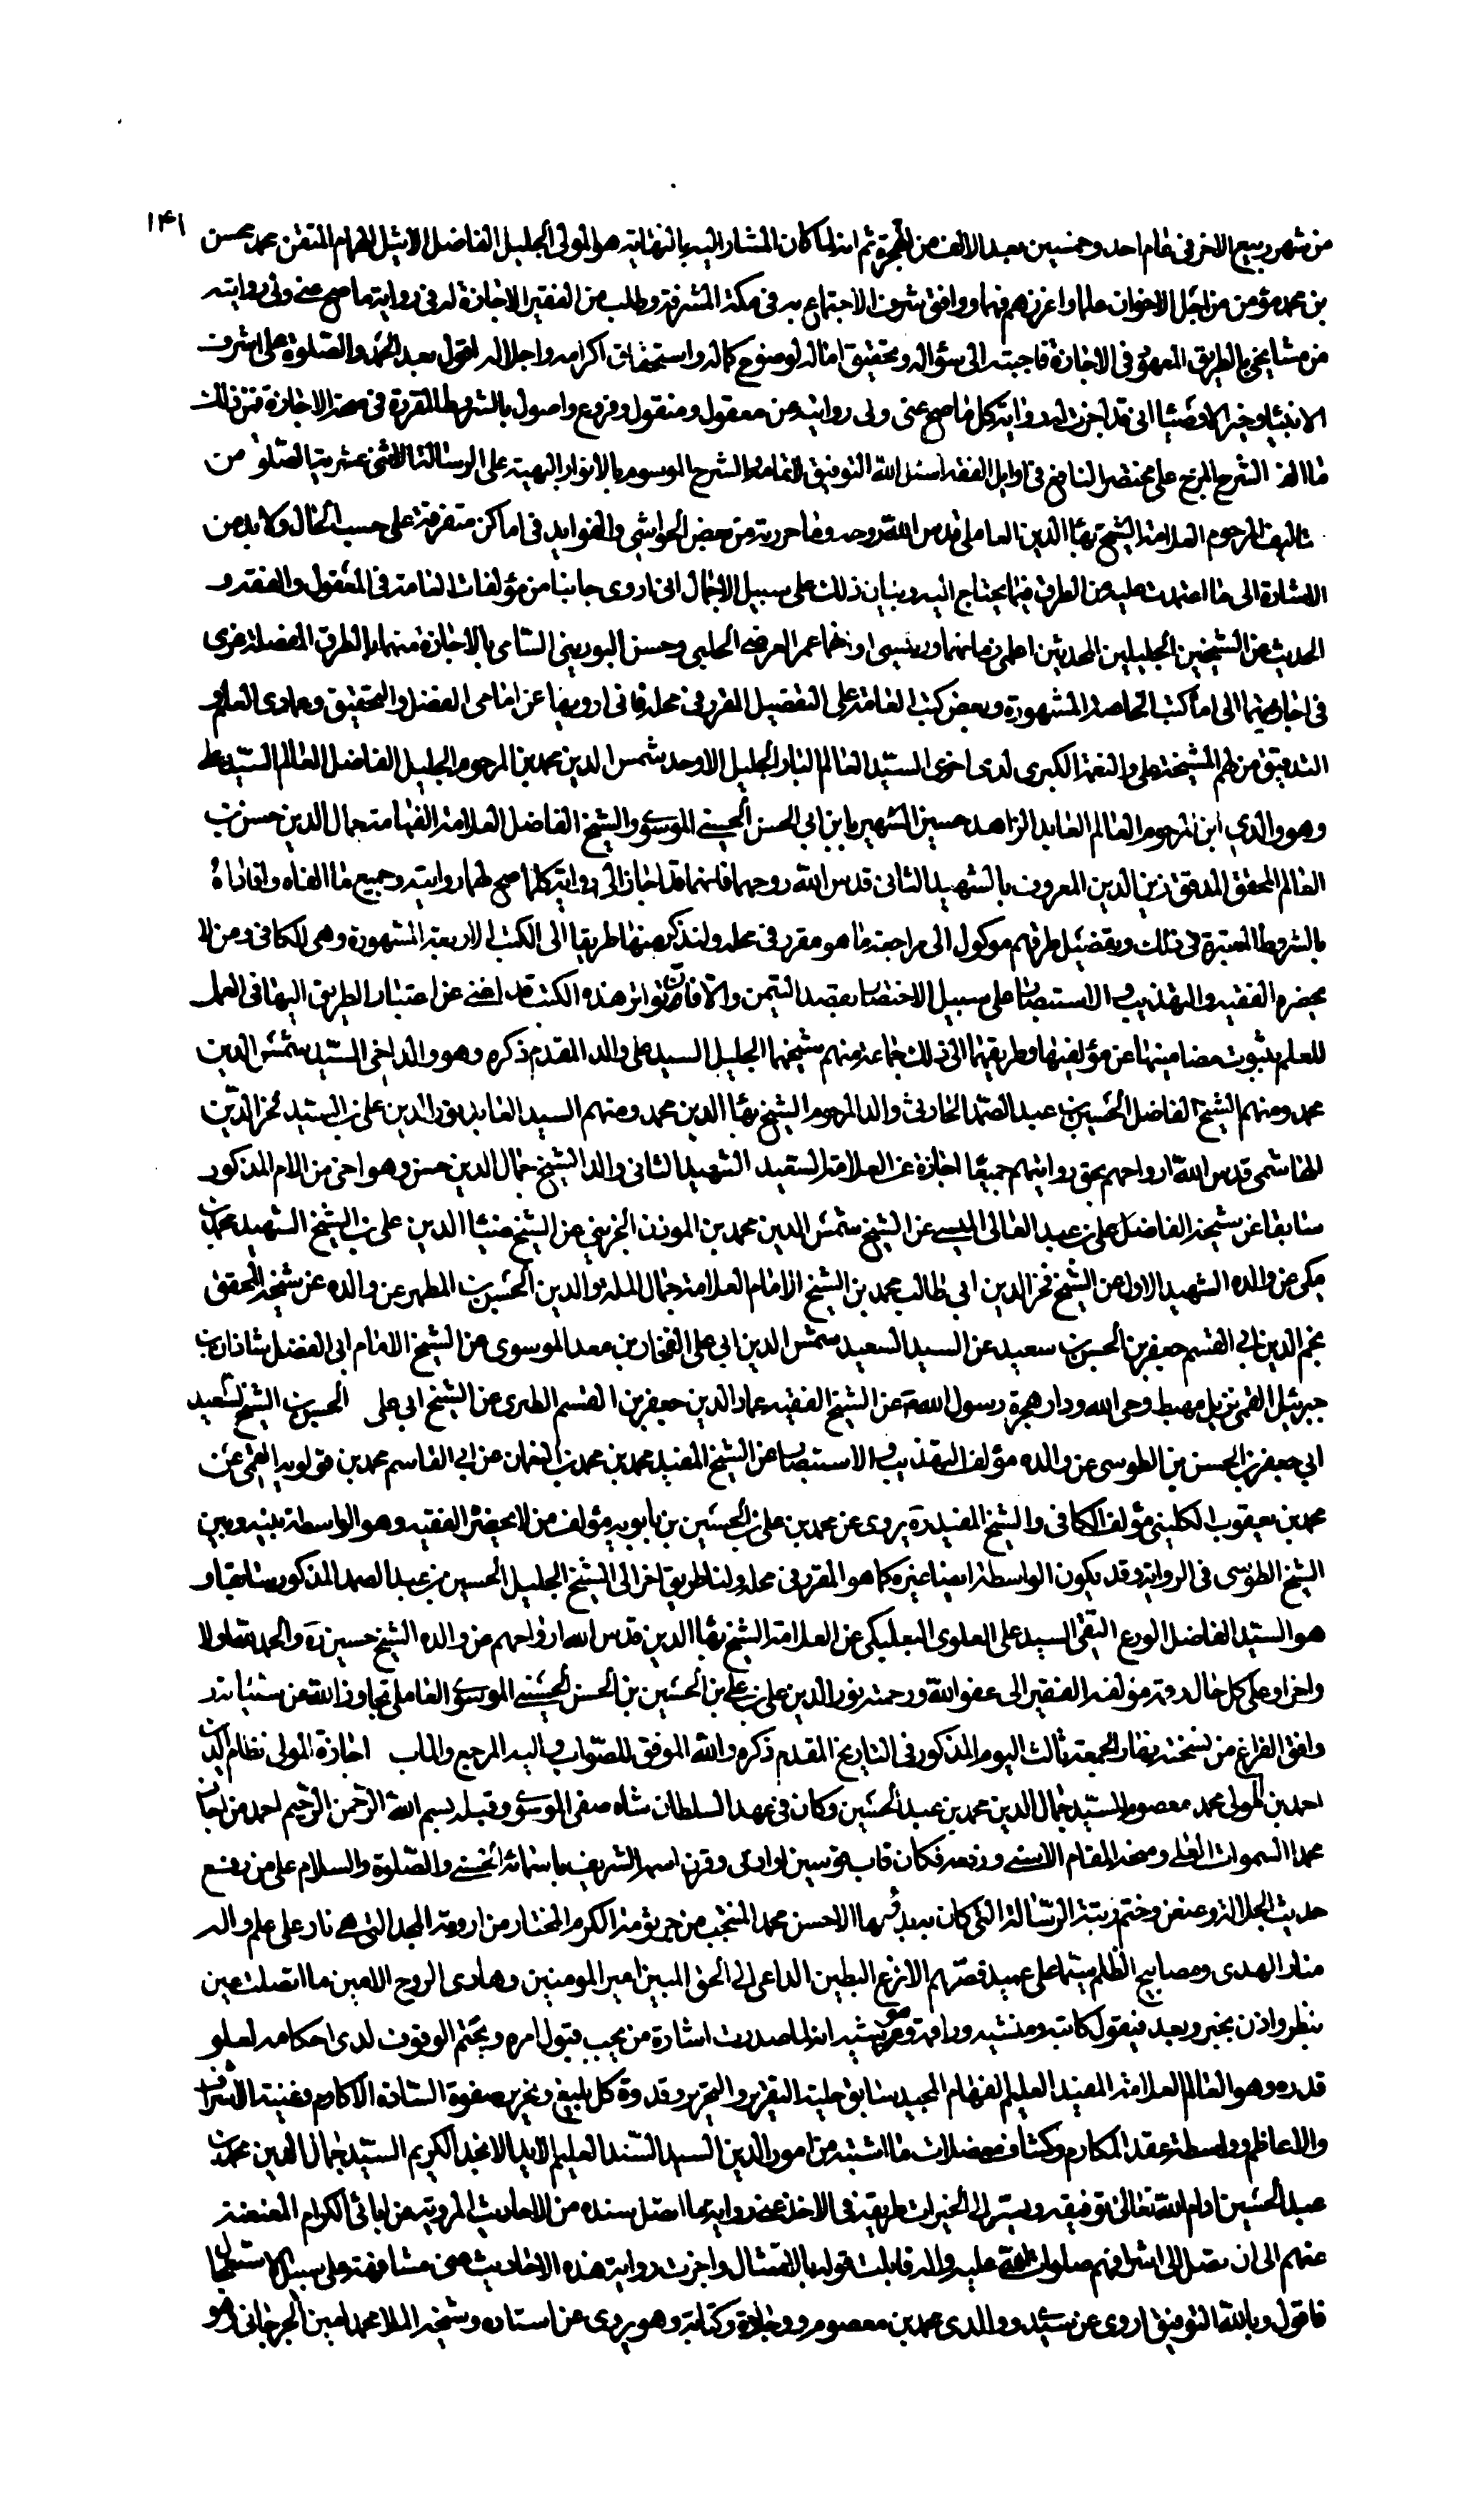 ١٤١
من شهر ربيع الاخر في عام احد وخمسين بعد الالف من الهجرة ثم انه لما كان المشار اليه بالنقابة هو المولى الجليل الفاضل الاثيل الهمام المتقن محمد محسن
بن محمد مؤمن من اجل الاخوان علما واغزرهم فهما ووافق شرف الاجتماع به في مكة المشرفة وطلب من الفقير الاجازة له في رواية ما صح عني ولي روايته
من مشايخي بالطريق المعهود في الاجازة فاجبته الى سؤاله وتحقيق اماله لوضوح كماله واستحقاق اكرامه واجلاله اقول بعد الحمد والصلوة على اشرف
الانبياء وخير الاوصياء اني قد اجزت له رواية كل ما صح عني ولي روايته من معقول ومنقول وفروع واصول بالشروط المقررة في صحة الاجازة فمن ذلك
ما الف الشرح المزج على مختصر النافع في اوايل الفقه اسئل الله التوفيق لاتمامه والشرح الموسوم بالانوار البهية على الرسالة الاثنى عشرية الصلوة من
تاليف المرحوم العلامة الشيخ بهاء الدين العاملي قدس الله روحه وما حررته من بعض الحواشي والفوايد في اماكن متفرقة على حسب الحال ولا بد من
الاشارة الى ما اعتمدت عليه من الطرق فيما يحتاج اليه وبيان ذلك على سبيل الاجمال اني اروى جانبا من مؤلفات العامة في المعقول والفقه و
الحديث عن الشيخين الجليلين المحدثين اعلمي زمانهما ورئيسي اوانهما عمر العرضي الحلبي وحسن البوريني الشامي بالاجازة منهما بالطرق المفصلة عزى
في اجازتهما الى ما كتب الخاصة المشهورة وبعض كتب العامة على التفصيل المقرر في محله فاني ارويها عن امامي الفضل والتحقيق وعمادي العلم و
التدقيق من لهم المشيخة علي والنعمة الكبرى لدى اخوى السيد العالم البار الجليل الاوحد شمس الدين محمد بن المرحوم الجليل الفاضل العالم السيد علي
وهو والدي ابن المرحوم العالم العابد الزاهد حسين الشهير بابن ابي الحسن الحسيني الموسوي والشيخ الفاضل العلامة الفهامة جمال الدين حسن بن
العالم المحقق المدقق زين الدين المعروف بالشهيد الثاني قدس الله روحهما فانهما قد اجازا لي رواية كلما صح لهما روايته وجميع ما الفاه وافاداه
بالشروط المعتبرة في ذلك وتفصيل طرقهم موكول الى مراجعة ما هو مقرر في محله ولنذكر منها طريقا الى الكتب الاربعة المشهورة وهي الكافي ومن لا
يحضره الفقيه والتهذيب والاستبصار على سبيل الاختصار بقصد التيمن والا فان تواتر هذه الكتب قد اغنى عن اعتبار الطريق اليها في العمل
للعلم بثبوت مضامينها عن مؤلفيها وطريقهما الى ذلك جماعة منهم شيخهما الجليل السيد علي والد المقدم ذكره وهو والد اخي السيد شمس الدين
محمد ومنهم الشيخ الفاضل الحسين بن عبد الصمد الحارثي والد المرحوم الشيخ بهاء الدين محمد ومنهم السيد العابد نور الدين علي بن السيد فخر الدين
الهاشمي قدس الله ارواحهم بحق روايتهم جميعا اجازة عن العلامة السعيد الشهيد الثاني والد الشيخ جمال الدين حسن وهو اخي من الام المذكور
سابقا عن شيخه الفاضل علي بن عبد العالي الميسي عن الشيخ شمس الدين محمد بن الموذن الجزيني عن الشيخ ضياء الدين علي بن الشيخ الشهيد محمد بن
مكي عن والده الشهيد الاول عن الشيخ فخر الدين ابي طالب محمد بن الشيخ الامام العلامة جمال الملة والدين الحسن بن المطهر عن والده عن شيخه المحقق
نجم الدين ابي القسم جعفر بن الحسن بن سعيد عن السيد السعيد شمس الدين ابي علي الفخار بن معد الموسوي عن الشيخ الامام ابي الفضل شاذان بن
جبرئيل القمي نزيل مهبط وحي الله ودار هجرة رسول الله ص عن الشيخ الفقيه عماد الدين جعفر بن القسم الطبري عن الشيخ ابي علي الحسن بن الشيخ السعيد
ابي جعفر بن الحسن بن الطوسي عن والده مؤلف التهذيب والاستبصار عن الشيخ المفيد محمد بن محمد بن النعمان عن ابي القاسم محمد بن قولويه القمي عن
محمد بن يعقوب الكليني مؤلف الكافي والشيخ المفيد ره يروى عن محمد بن علي بن الحسين بن بابويه مؤلف من لا يحضره الفقيه وهو الواسطة بينه وبين
الشيخ الطوسي في الرواية وقد يكون الواسطة ايضا غيره كما هو المقرر في محله ولنا طريق اخر الى الشيخ الجليل الحسين بن عبد الصمد المذكور سابقا و
هو السيد الفاضل الورع التقي السيد علي العلوي البعلبكي عن العلامة الشيخ بهاء الدين قدس الله ارواحهم عن والده الشيخ حسين ره والحمد لله اولا
واخرا وعلى كل حال رقمه مؤلفه الفقير الى عفو الله ورحمته نور الدين علي بن علي بن الحسين بن ابي الحسن الحسيني الموسوي العاملي تجاوز الله عن سيئاته
وافق الفراغ من نسخته نهار الجمعة ثالث اليوم المذكور في التاريخ المقدم ذكره والله الموفق للصواب واليه المرجع والماب اجازة المولى نظام الدين
احمد بن المولى محمد معصوم السيد جمال الدين محمد بن عبد الحسين وكان في عهد السلطان شاه صفي الموسوي وقبله بسم الله الرحمن الرحيم احمد من اجاز
محمدا السموات العلى ومنحه المقام الاسنى ورفعه فكان قاب قوسين او ادنى وقرن اسمه الشريف باسمائه الحسنى والصلوة والسلام على من رفع
حديث الجلالة وعنعن وختم رتبة الرسالة التي كان به بدؤها الاحسن محمد المنتخب من جرثومة الكرم المختار من ارومة المجد التي هي نار على علم واله
منار الهدى ومصابيح الظلم سيما علي عميد قصرتهم الانزع البطين الداعي الى الحق المبين امير المومنين وهادي الروح الامين ما اتصلت عين
بنظر واذن بخبر وبعد فيقول كاتبه ومنشيه وراقمه وموشيه انه لما صدرت اشارة من يجب قبول امره ويتحتم الوقوف لدى احكامه لعلو
قدره وهو العالم العلامة المفيد العليم الفهام المجيد سابق حلبة التقرير والتحرير وقدوة كل بليغ ونحرير صفوة السادة الاكارم وغنية الاشراف
والاعاظم وواسطة عقد المكارم وكشاف معضلات ما اشتبه من امور الدين السيد السند العليم الايد الامجد الكريم السيد جمال الدين محمد بن
عبد الحسين ادام الله تعالى توفيقه ويسر الى الخيرات طريقه في الاخذ عني رواية ما اتصل سنده من الاحاديث المروية عن ابائي الكرام المعنعنة
عنهم الى ان تصل الى اشرافهم صلوات الله عليه واله قابلت قوله بالامتثال واجزت رواية هذه الاحاديث عني مشافهة على سبيل الاستعجال
فاقول وبالله التوفيق اروى عن سيدي ووالدي محمد بن معصوم وجادة وكتابة وهو يروى عن استاده وشيخه الملا محمد امين الجرجاني وهو